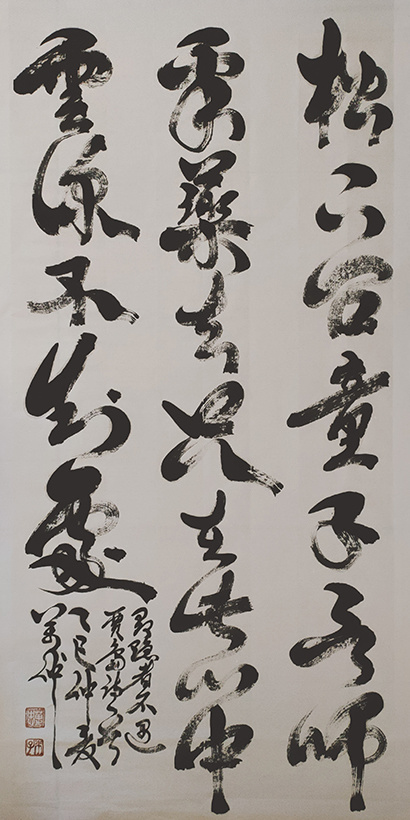 松下問童子言師
采藥去只在此山中
雲深不知處
尋隱者不遇
賈島詩
乙巳仲夏